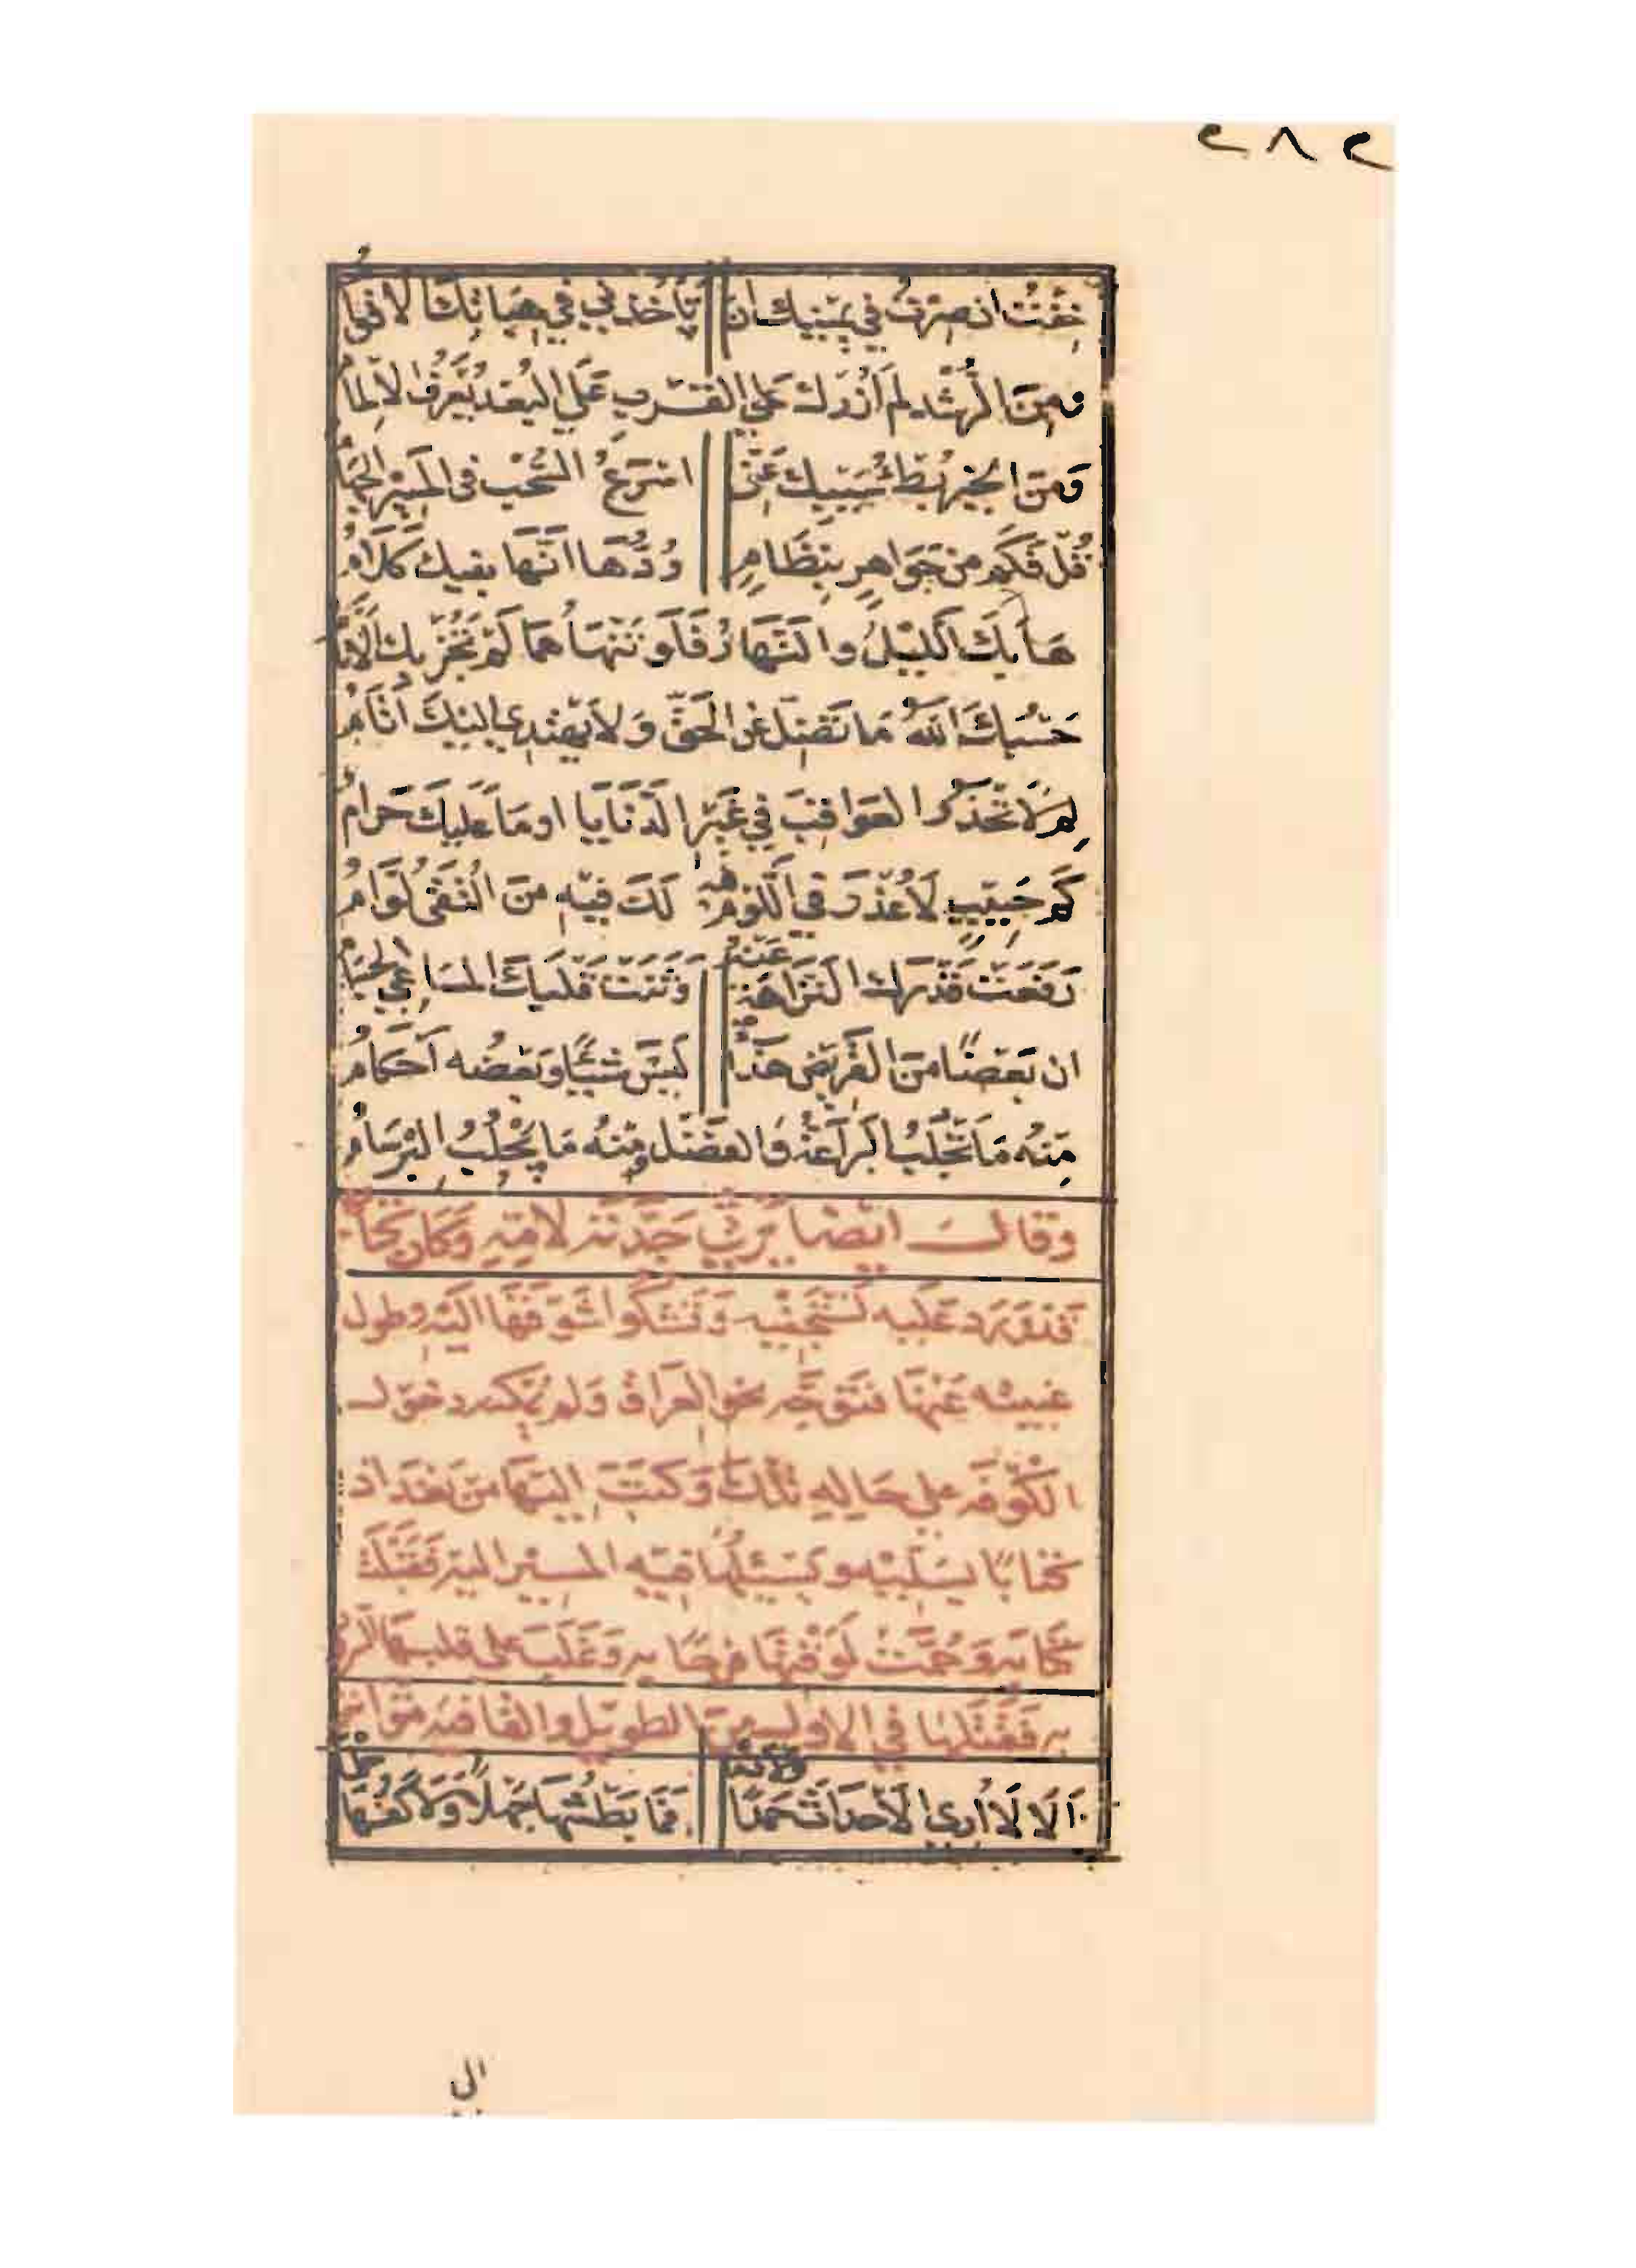 ٢٨٢
خفْتُ ان صِرْتُ في يَمِينِكَ ان تَأخُذَنِي في هِبَاتِكَ الاقوامُ
ومِنَ الرُّشْدِ لَمْ اَزُرْكَ عَلَى القُرْبِ عَلَى البُعْدِ يُعْرَفُ الالمامُ
وَمِنَ الخَيْرِ بُطْئُ سَيْبِكَ عَنِّي اسْرَعُ السُّحْبِ في المَسِيْرِ الجَهَامُ
قُلْ فَكَمْ مِنْ جَوَاهِرٍ بِنِظَامٍ وُدُّهَا اَنَّهَا بِفِيكَ كَلَامُ
هَابَكَ اللَّيْلُ والنَّهَارُ فَلَوْ تَنْهَاهُمَا لَمْ تَجُزْ بِكَ الاَيَّامُ
حَسْبُكَ اللهُ مَا تَضِلُّ عَنِ الحَقِّ وَلَا يَهْتَدِي اِلَيْكَ اَثَامُ
لِمَ لَا تَحْذَرُ العَوَاقِبَ فِي غَيْرِ الدَّنَايَا اومَا عَلَيكَ حَرَامُ
كَمْ حَبِيْبٍ لَا عُذْرَ فِي اللَّوْمِ فيه لَكَ فِيْهِ مِنَ التُّقَى لُوَّامُ
رَفَعَتْ قَدْرَكَ النَّزَاهَةُ عَنْهُ وَثَنَتْ قَلْبَكَ المَسَاعِي الجِسَامُ
ان بَعْضًا مِنَ القَرِيْضِ هَذَاءٌ لَيْسَ شَيْئًا وَبَعْضُه اَحْكَامُ
مِنْهُ مَا تَجْلُبُ البَرَاعَةُ وَالفَضْلُ وَمِنْهُ مَا يَجْلُبُ البِرْسَامُ
وقال ايْضًا يَرْثِي جَدَّتَهُ لِاُمِّهِ وَكَانَ كتابها
قَدْ وَرَدَ عَلَيْهِ تستجفيه وَتَشْكُوا شَوْقَهَا اليْهِ وطول
غيبته عَنْهَا فَتَوَجَّهَ نحو العِرَاقِ وَلم يُمْكنه دخول
الكُوْفَةِ على حَالِهِ تِلْكَ وَكَتَبَ اِلَيْهَا مِنْ بَغْدَاد
كِتَابًا يسئلها فيه المسير اليه فَقَبَّلَتْ
كِتَابَهُ وَحُمَّتْ لِوَقْتِهَا فرحًا بِهِ وَغَلَبَ على قَلْبِهَا السُّرُور
بِهِ فَقَتَلَهَا في الاول مِنَ الطويل والقافية متواتر
اَلَا لَا اُرِي الاَحْدَاثَ حَمْدًا وَلَا ذَمَّا فَمَا بَطْشُهَا جَهْلًا وَلَا كَفُّهَا حِلْمَا